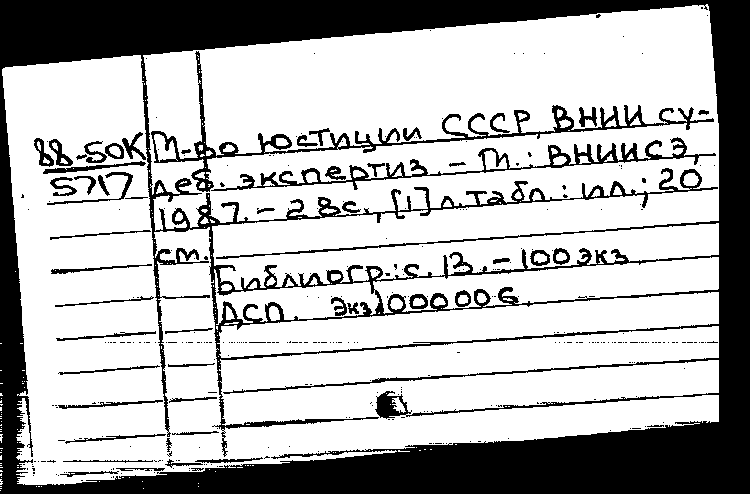 88-50К М-во юстиции СССР, ВНИИ су-
5717 деб. экспертиз. - М.: ВНИИСЭ,
1987. - 28с., [1] л. табл.: ил.; 20
см.
Библиогр.: с. 13. - 100 экз
ДСП. Экз. 000006.